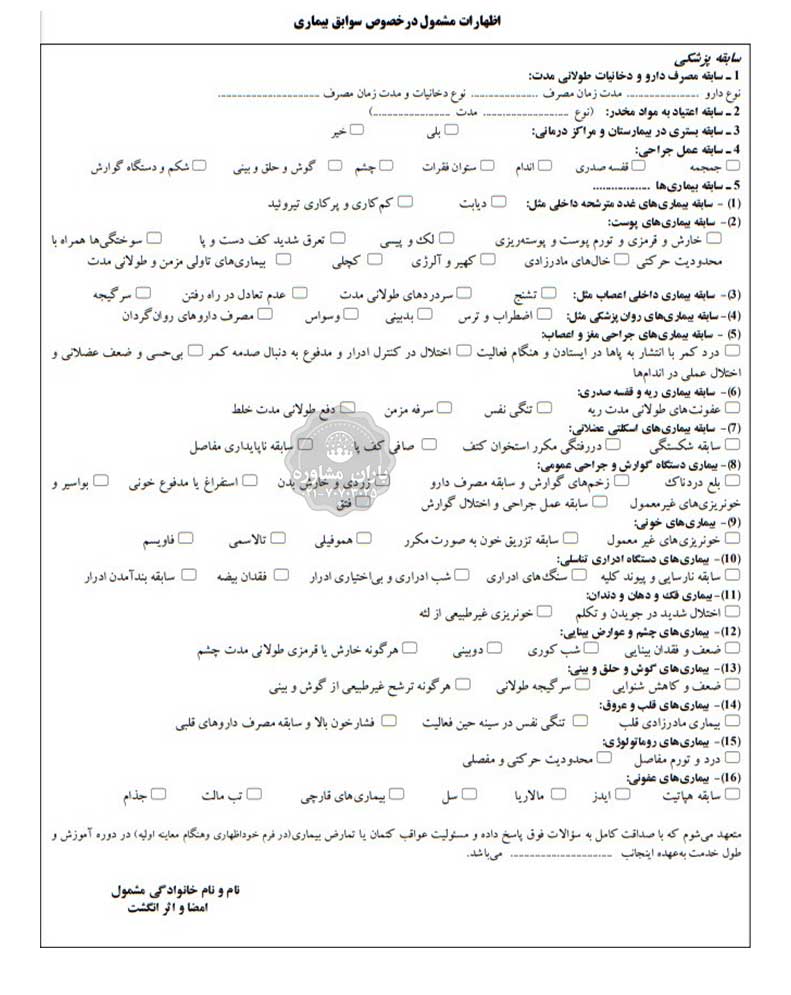 اظهارات مشمول درخصوص سوابق بیماری
سابقه پزشکی
1 ـ سابقه مصرف دارو و دخانیات طولانی مدت:
نوع دارو .......................... مدت زمان مصرف ........................ نوع دخانیات و مدت زمان مصرف ....................................
2 ـ سابقه اعتیاد به مواد مخدر: (نوع .............................. مدت ............................)
3 ـ سابقه بستری در بیمارستان و مراکز درمانی: بلی خیر
4 ـ سابقه عمل جراحی:
جمجمه قفسه صدری اندام ستوان فقرات چشم گوش و حلق و بینی شکم و دستگاه گوارش
5 ـ سابقه بیماری‌ها ....................
(1) - سابقه بیماری‌های غدد مترشحه داخلی مثل: دیابت کم‌کاری و پرکاری تیروئید
(2)- سابقه بیماری‌های پوست:
خارش و قرمزی و تورم پوست و پوسته‌ریزی لک و پیسی تعرق شدید کف دست و پا سوختگی‌ها همراه با
محدودیت حرکتی خال‌های مادرزادی کهیر و آلرژی کچلی بیماری‌های تاولی مزمن و طولانی مدت
(3)- سابقه بیماری داخلی اعصاب مثل: تشنج سردردهای طولانی مدت عدم تعادل در راه رفتن سرگیجه
(4)- سابقه بیماری‌های روان پزشکی مثل: اضطراب و ترس بدبینی وسواس مصرف داروهای روان‌گردان
(5) - سابقه بیماری‌های جراحی مغز و اعصاب:
درد کمر با انتشار به پاها در ایستادن و هنگام فعالیت اختلال در کنترل ادرار و مدفوع به دنبال صدمه کمر بی‌حسی و ضعف عضلانی و
اختلال عملی در اندام‌ها
(6)- سابقه بیماری ریه و قفسه صدری:
عفونت‌های طولانی مدت ریه تنگی نفس سرفه مزمن دفع طولانی مدت خلط
(7)- سابقه بیماری‌های اسکلتی عضلانی:
سابقه شکستگی دررفتگی مکرر استخوان کتف صافی کف پا سابقه ناپایداری مفاصل
(8)- بیماری دستگاه گوارش و جراحی عمومی:
بلع دردناک زخم‌های گوارش و سابقه مصرف دارو زردی و خارش بدن استفراغ یا مدفوع خونی بواسیر و
خونریزی‌های غیرمعمول سابقه عمل جراحی و اختلال گوارش فتق
(9)- بیماری‌های خونی:
خونریزی‌های غیر معمول سابقه تزریق خون به صورت مکرر هموفیلی تالاسمی فاویسم
(10)- بیماری‌های دستگاه ادراری تناسلی:
سابقه نارسایی و پیوند کلیه سنگ‌های ادراری شب ادراری و بی‌اختیاری ادرار فقدان بیضه سابقه بندآمدن ادرار
(11)- بیماری فک و دهان و دندان:
اختلال شدید در جویدن و تکلم خونریزی غیرطبیعی از لثه
(12)- بیماری‌های چشم و عوارض بینایی:
ضعف و فقدان بینایی شب کوری دوبینی هرگونه خارش یا قرمزی طولانی مدت چشم
(13)- بیماری‌های گوش و حلق و بینی:
ضعف و کاهش شنوایی سرگیجه طولانی هرگونه ترشح غیرطبیعی از گوش و بینی
(14)- بیماری‌های قلب و عروق:
بیماری مادرزادی قلب تنگی نفس در سینه حین فعالیت فشارخون بالا و سابقه مصرف داروهای قلبی
(15)- بیماری‌های روماتولوژی:
درد و تورم مفاصل محدودیت حرکتی و مفصلی
(16)- بیماری‌های عفونی:
سابقه هپاتیت ایدز مالاریا سل بیماری‌های قارچی تب مالت جذام
متعهد می‌شوم که با صداقت کامل به سؤالات فوق پاسخ داده و مسئولیت عواقب کتمان یا تمارض بیماری(در فرم خوداظهاری وهنگام معاینه اولیه) در دوره آموزش و
طول خدمت به‌عهده اینجانب .................................. می‌باشد.
نام و نام خانوادگی مشمول
امضا و اثر انگشت
یاران مشاوره